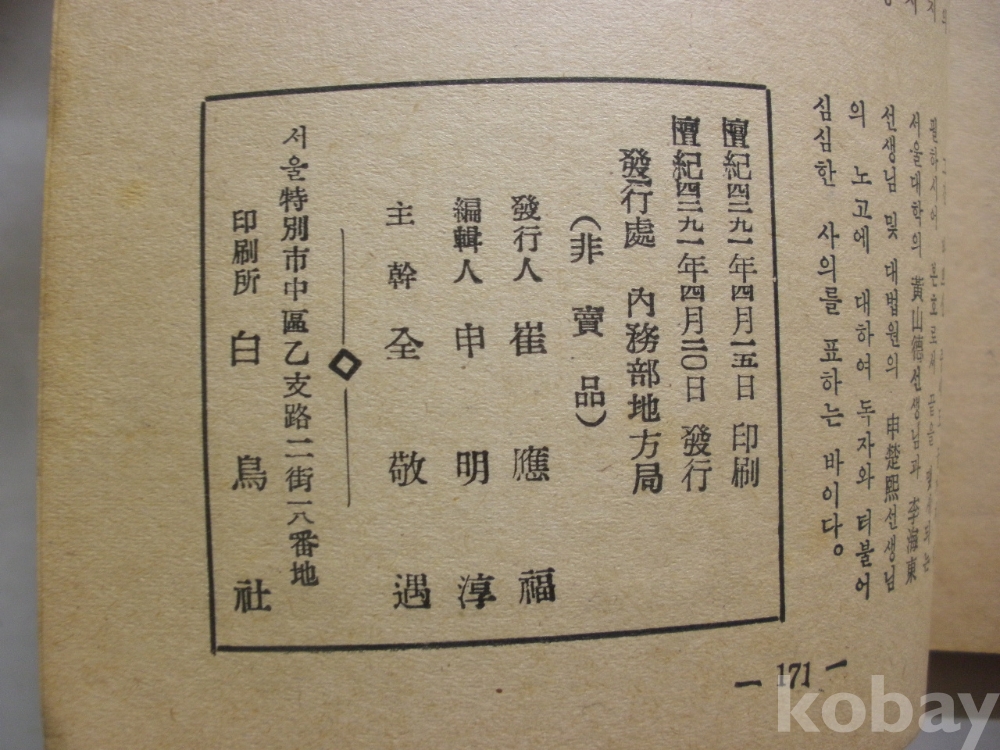 필하시어 본호로써 끝을 맺게 되는
서울대학의 黃山德선생님과 李海東
선생님 및 대법원의 申楚熙선생님
의 노고에 대하여 독자와 더불어
심심한 사의를 표하는 바이다。
檀紀四二九一年四月一五日 印刷
檀紀四二九一年四月二〇日 發行
發行處 內務部地方局
(非賣品)
發行人 崔應福
編輯人 申明淳
主幹 全敬遇
서울特別市中區乙支路二街一八番地
印刷所 白鳥社
— 171 —
kobay